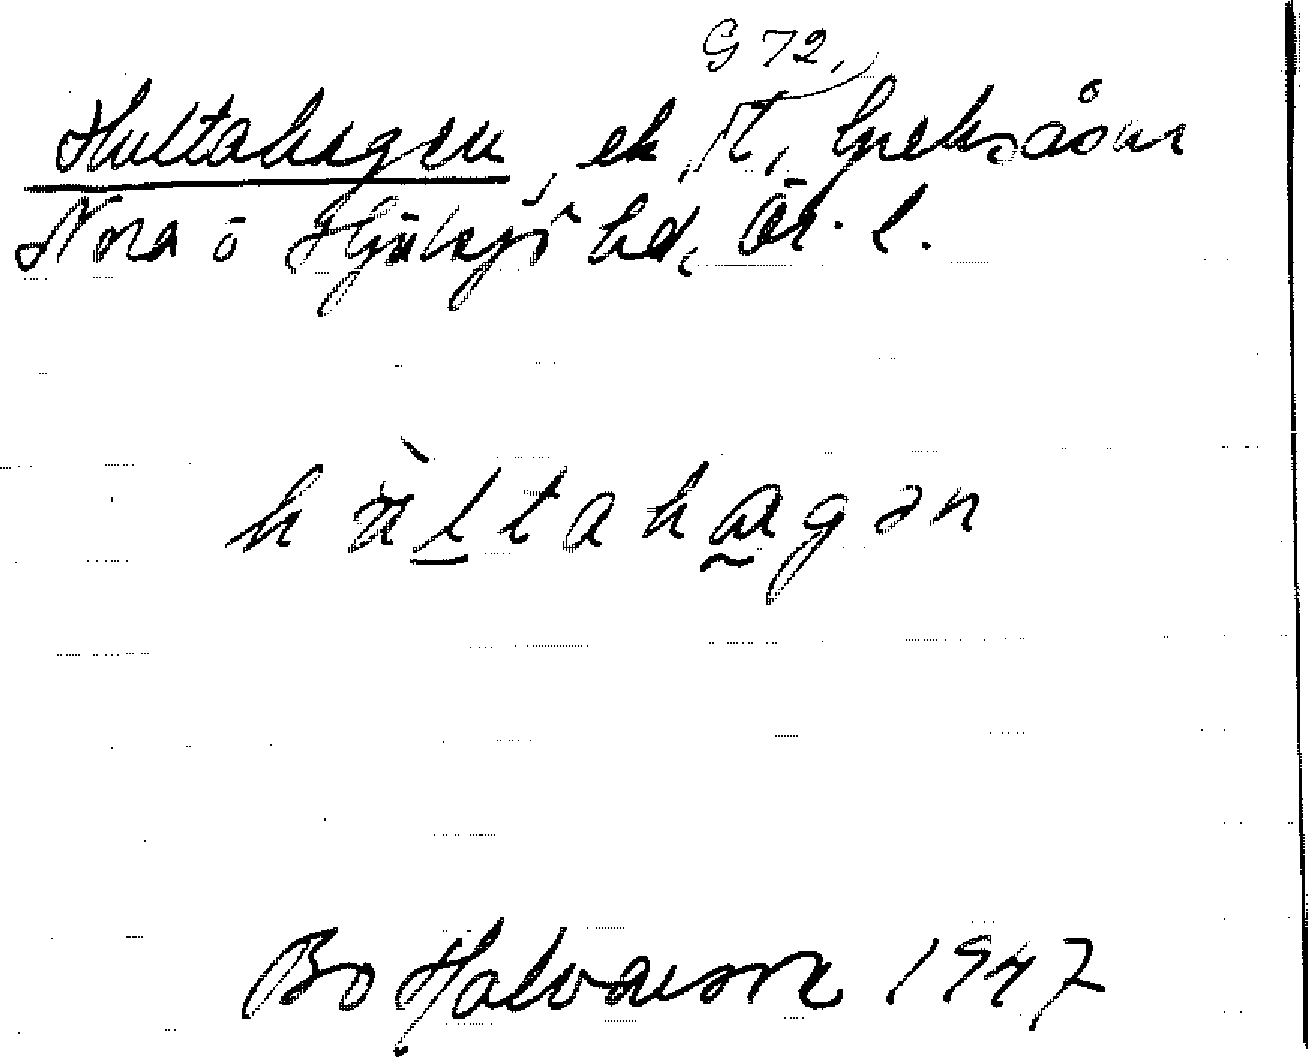 G 72,
Hultahagen, ek, st, Greksåsar
Nora o Hjulsjö hd, Ör. l.
hùltahagən
Bo Halvarson 1947